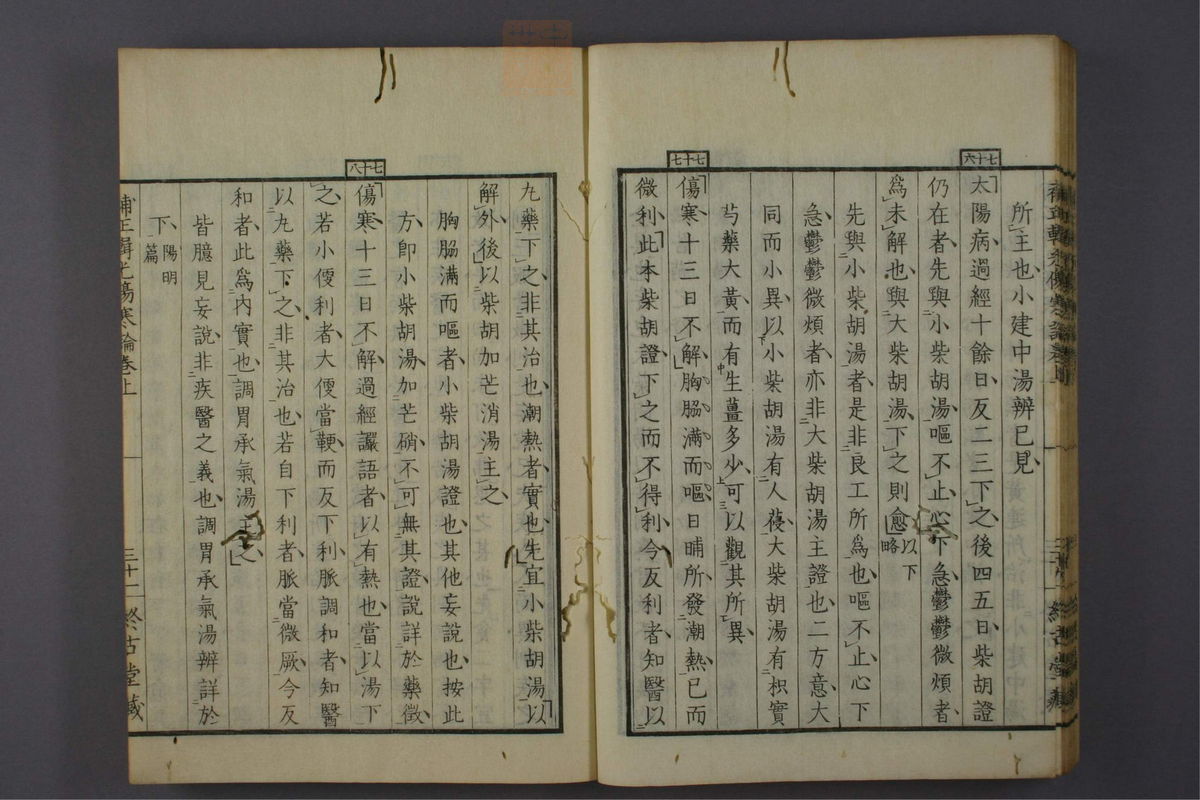 所主也小建中湯辨已見
七十六
太陽病過經十餘日反二三下之後四五日柴胡證
仍在者先與小柴胡湯嘔不止心下急鬱鬱微煩者
爲未解也與大柴胡湯下之則愈以下略
先與小柴胡湯者是非良工所爲也嘔不止心下
急鬱鬱微煩者亦非大柴胡湯主證也二方意大
同而小異以小柴胡湯有人葠大柴胡湯有枳實
芍藥大黃而有生薑多少可以觀其所異
七十七
傷寒十三日不解胸脇滿而嘔日晡所發潮熱已而
微利此本柴胡證下之而不得利今反利者知醫以
九藥下之非其治也潮熱者實也先宜小柴胡湯以
解外後以柴胡加芒消湯主之
胸脇滿而嘔者小柴胡湯證也其他妄說也按此
方卽小柴胡湯加芒硝不可無其證說詳於藥徵
七十八
傷寒十三日不解過經讝語者以有熱也當以湯下
之若小便利者大便當鞕而反下利脈調和者知醫
以九藥下之非其治也若自下利者脈當微厥今反
和者此爲内實也調胃承氣湯主之
皆臆見妄說非疾醫之義也調胃承氣湯辨詳於
下陽明篇
補正輯光傷寒論卷上
三十二
終古堂藏